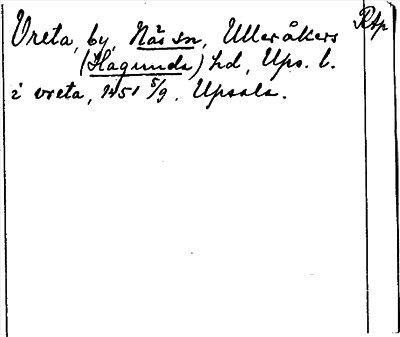 Vreta, by, Näs sn, Ulleråkers Rtp
(Hagunda) hd, Ups. l.
i vreta, 1451 5/9. Upsala.